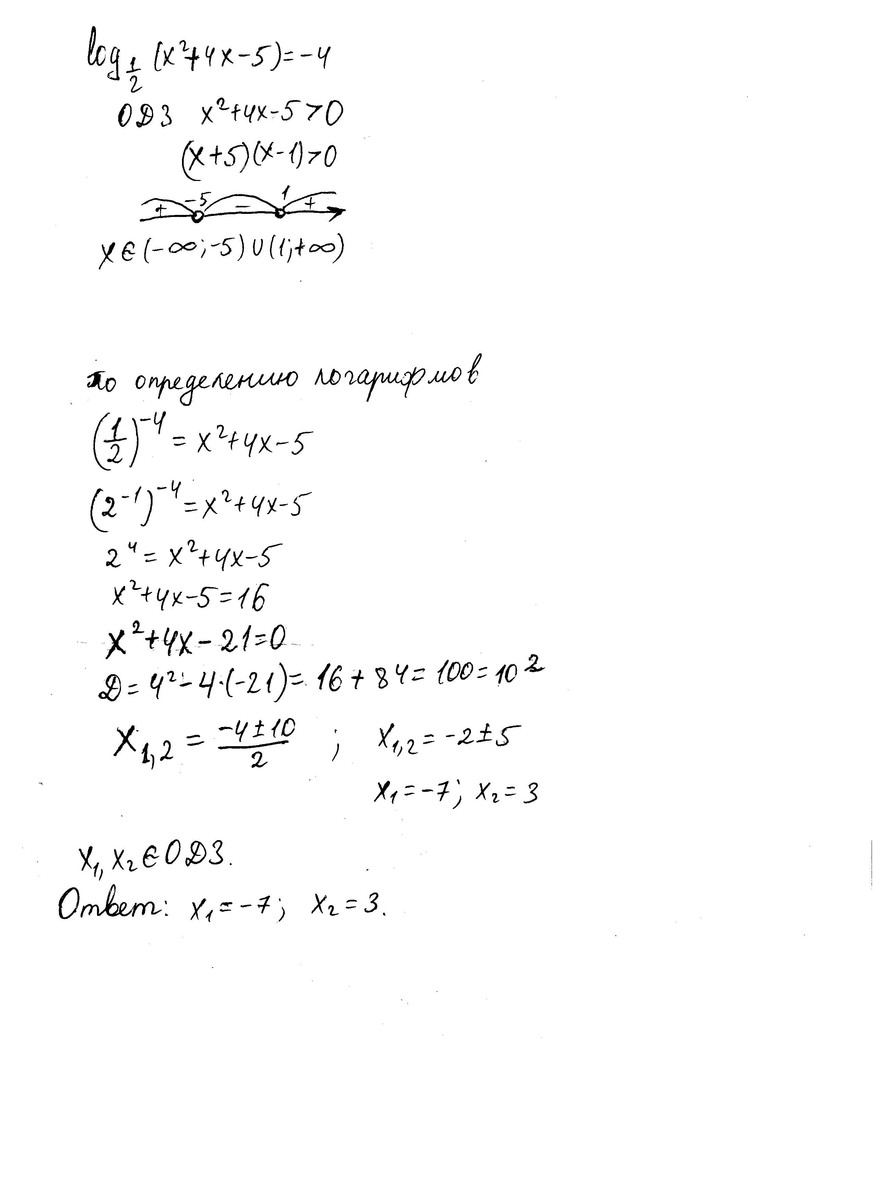 log_{1/2} (x²+4x-5)=-4
ОДЗ x²+4x-5>0
(x+5)(x-1)>0
+ -5 - 1 +
x∈(-∞;-5)∪(1;+∞)
по определению логарифмов
(1/2)^{-4} = x²+4x-5
(2^{-1})^{-4} = x²+4x-5
2⁴ = x²+4x-5
x²+4x-5=16
x²+4x-21=0
D=4²-4·(-21)=16+84=100=10²
x_{1,2} = (-4±10)/2 ; x_{1,2} = -2±5
x₁=-7; x₂=3
x₁, x₂ ∈ ОДЗ.
Ответ: x₁=-7; x₂=3.